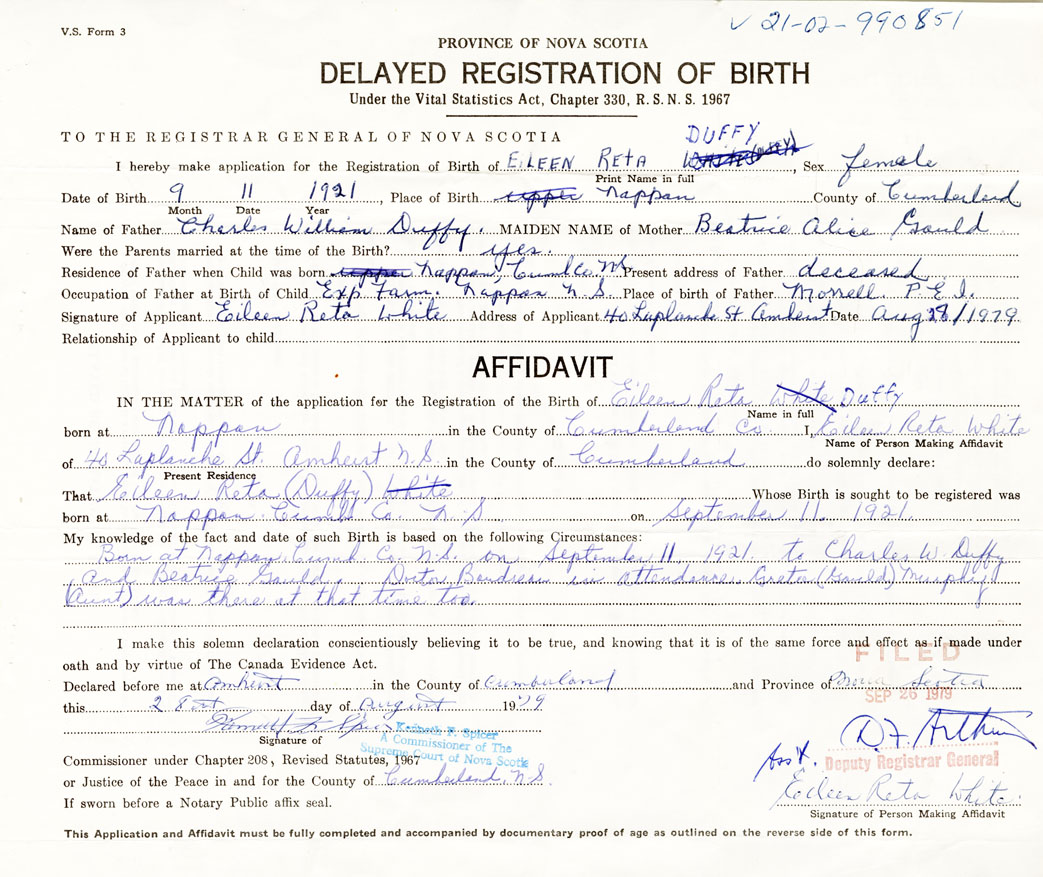 V.S. Form 3
V 21-02-990851
PROVINCE OF NOVA SCOTIA
DELAYED REGISTRATION OF BIRTH
Under the Vital Statistics Act, Chapter 330, R.S.N.S. 1967
TO THE REGISTRAR GENERAL OF NOVA SCOTIA
DUFFY
I hereby make application for the Registration of Birth of EILEEN RETA , Sex female
Print Name in full
Date of Birth 9 11 1921 , Place of Birth upper Nappan County of Cumberland
Month Date Year
Name of Father Charles William Duffy. MAIDEN NAME of Mother Beatrice Alice Gould
Were the Parents married at the time of the Birth? yes.
Residence of Father when Child was born upper Nappan, Cumb Co. NS Present address of Father deceased
Occupation of Father at Birth of Child Exp Farm. Nappan N.S. Place of birth of Father Morrell. P.E.I.
Signature of Applicant Eileen Reta White Address of Applicant 40 Laplanche St Amherst Date Aug /1979
Relationship of Applicant to child
AFFIDAVIT
IN THE MATTER of the application for the Registration of the Birth of Eileen Reta White Duffy
Name in full
born at Nappan in the County of Cumberland Co. I, Eileen Reta White
Name of Person Making Affidavit
of 40 Laplanche St. Amherst N.S. in the County of Cumberland do solemnly declare:
Present Residence
That Eileen Reta (Duffy) White Whose Birth is sought to be registered was
born at Nappan Cumb Co. N.S on September 11. 1921.
My knowledge of the fact and date of such Birth is based on the following Circumstances:
Born at Nappan Cumb. Co. N.S. on September 11 1921. to Charles W. Duffy
and Beatrice Gould. Doctor in attendance. Greta (Gould) Murphy
(Aunt) was there at that time too.
I make this solemn declaration conscientiously believing it to be true, and knowing that it is of the same force and effect as if made under
oath and by virtue of The Canada Evidence Act.
FILED
Declared before me at Amherst in the County of Cumberland and Province of Nova Scotia
SEP 26 1979
this day of August 1979
Kenneth F. Spicer
A Commissioner of The
Supreme Court of Nova Scotia
Signature of
D F Arthur
Commissioner under Chapter 208, Revised Statutes, 1967
Ass't. Deputy Registrar General
or Justice of the Peace in and for the County of Cumberland, N.S.
Eileen Reta White
If sworn before a Notary Public affix seal.
Signature of Person Making Affidavit
This Application and Affidavit must be fully completed and accompanied by documentary proof of age as outlined on the reverse side of this form.